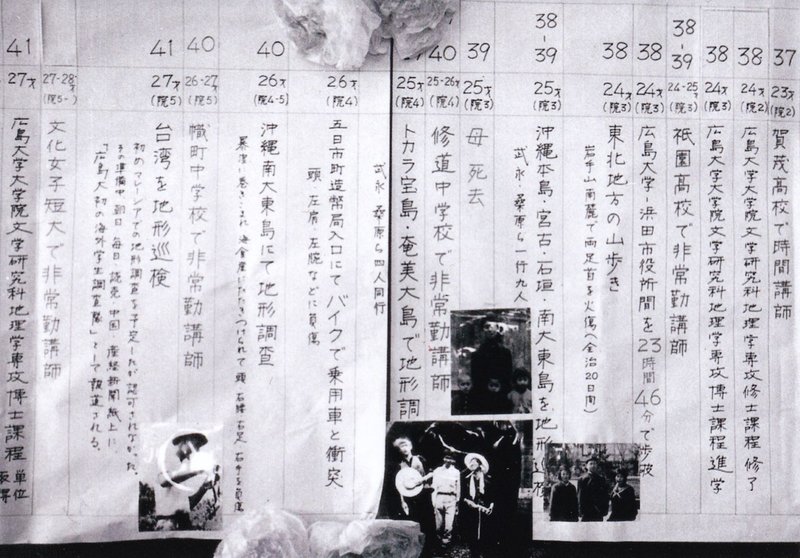 37
23才
(院2)
賀茂高校で時間講師
38
24才
(院2)
広島大学大学院文学研究科地理学専攻修士課程修了
38
24才
(院3)
広島大学大学院文学研究科地理学専攻博士課程進学
38-39
24-25才
(院3)
祇園高校で非常勤講師
38
24才
(院3)
広島大学-浜田市役所間を23時間46分で歩破
38
24才
(院3)
東北地方の山歩き
岩手山南麓で両足首を火傷(全治20日間)
38-39
25才
(院3)
沖縄本島・宮古・石垣・南大東島を地形巡検
武永・桑原ら一行九人
39
25才
(院3)
母 死去
40
25-26才
(院4)
修道中学校で非常勤講師
25才
(院4)
トカラ宝島・奄美大島で地形調
武永・桑原ら四人同行
26才
(院4)
五日市町造幣局入口にてバイクで乗用車と衝突
頭 左肩 左腕などに負傷
40
26才
(院4-5)
沖縄南大東島にて地形調査
暴浪に巻きこまれ 海食崖にたたきつけられて頭 右腰 右足 右手を負傷
40
26-27才
(院5)
幟町中学校で非常勤講師
41
27才
(院5)
台湾を地形巡検
初めマレーシアでの地形調査を予定したが認可されなかった。
その準備中 朝日 毎日 読売 中国 産経新聞紙上に
「広島大初の海外学生調査隊」として報道される。
27-28才
(院5-)
文化女子短大で非常勤講師
41
27才
(院5)
広島大学大学院文学研究科地理学専攻博士課程単位取得